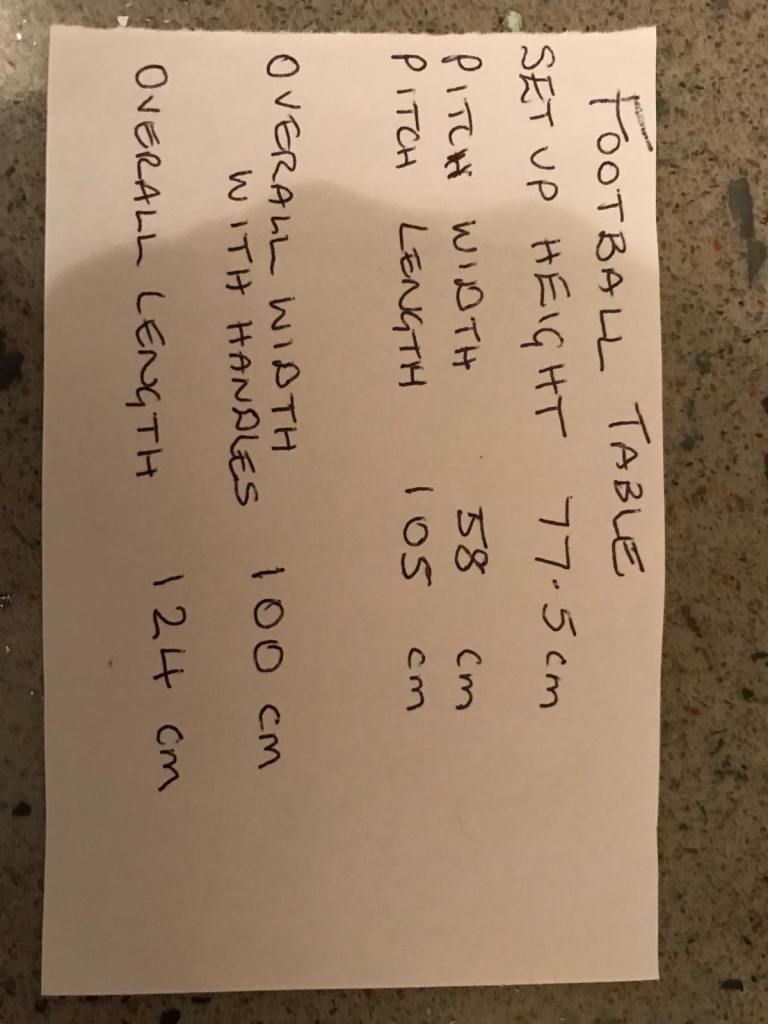 FOOTBALL TABLE
SET UP HEIGHT 77.5 cm
PITCH WIDTH 58 cm
PITCH LENGTH 105 cm
OVERALL WIDTH
WITH HANDLES 100 cm
OVERALL LENGTH 124 cm